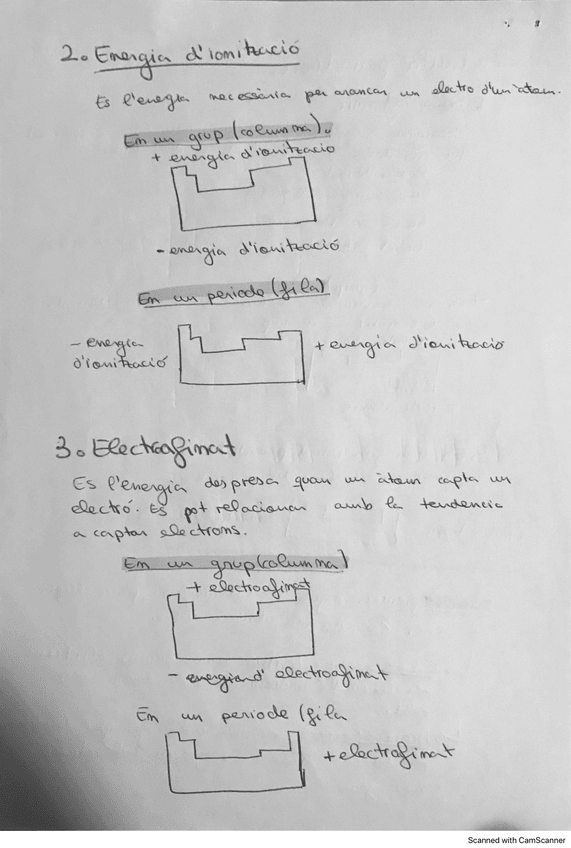 2. Energia d'ionització
Es l'energia necessària per arancar un electro d'un àtom.
En un grup (columna).
+ energia d'ionitzacio
- energia d'ionització
En un periode (fila)
- energia
d'ionització
+ energia d'ionització
3. Electroafinitat
Es l'energia despresa quan un àtom capta un
electró. Es pot relacionar amb la tendencia
a captar electrons.
En un grup (columna)
+ electroafinitat
- electroafinitat
En un periode (fila
+ electrafinitat
Scanned with CamScanner